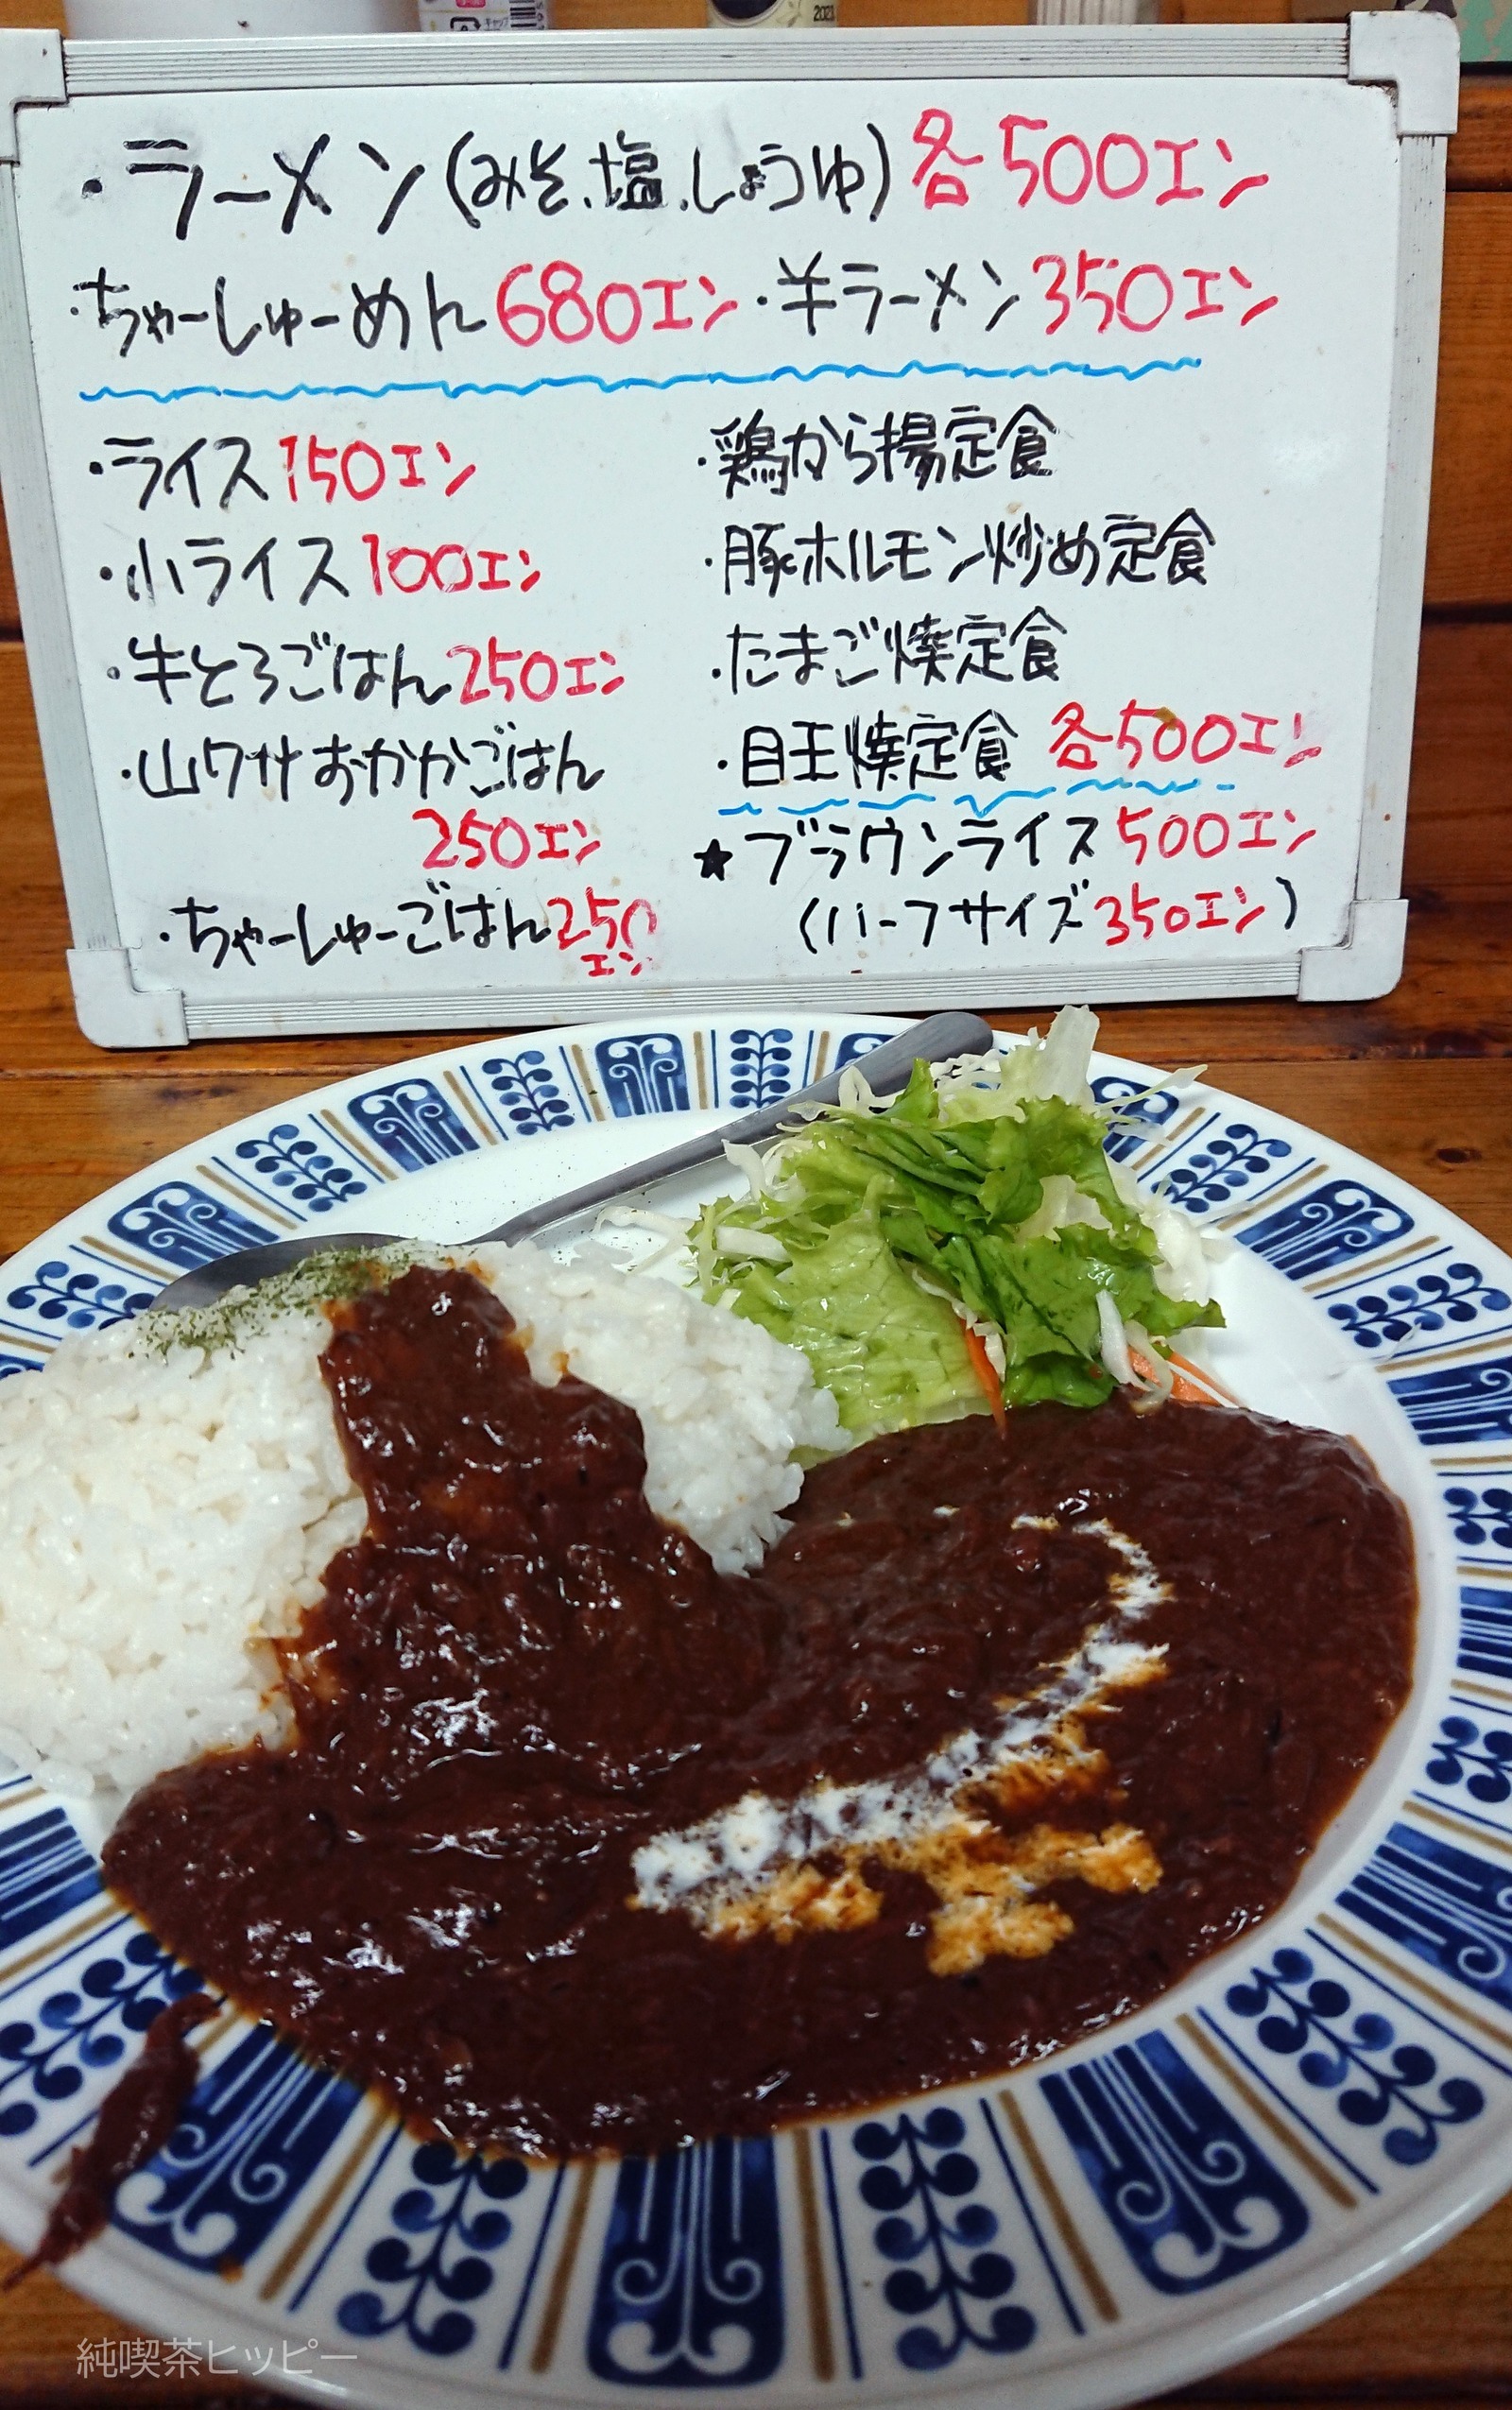 2021
・ラーメン(みそ、塩、しょうゆ)各500エン
・ちゃーしゅーめん680エン・半ラーメン350エン
・ライス150エン
・小ライス100エン
・牛とろごはん250エン
・山ワサおかかごはん
250エン
・ちゃーしゅーごはん250
エン
・鶏から揚定食
・豚ホルモン炒め定食
・たまご焼定食
・目玉焼定食 各500エン
★ブラウンライス500エン
(ハーフサイズ350エン)
純喫茶ヒッピー